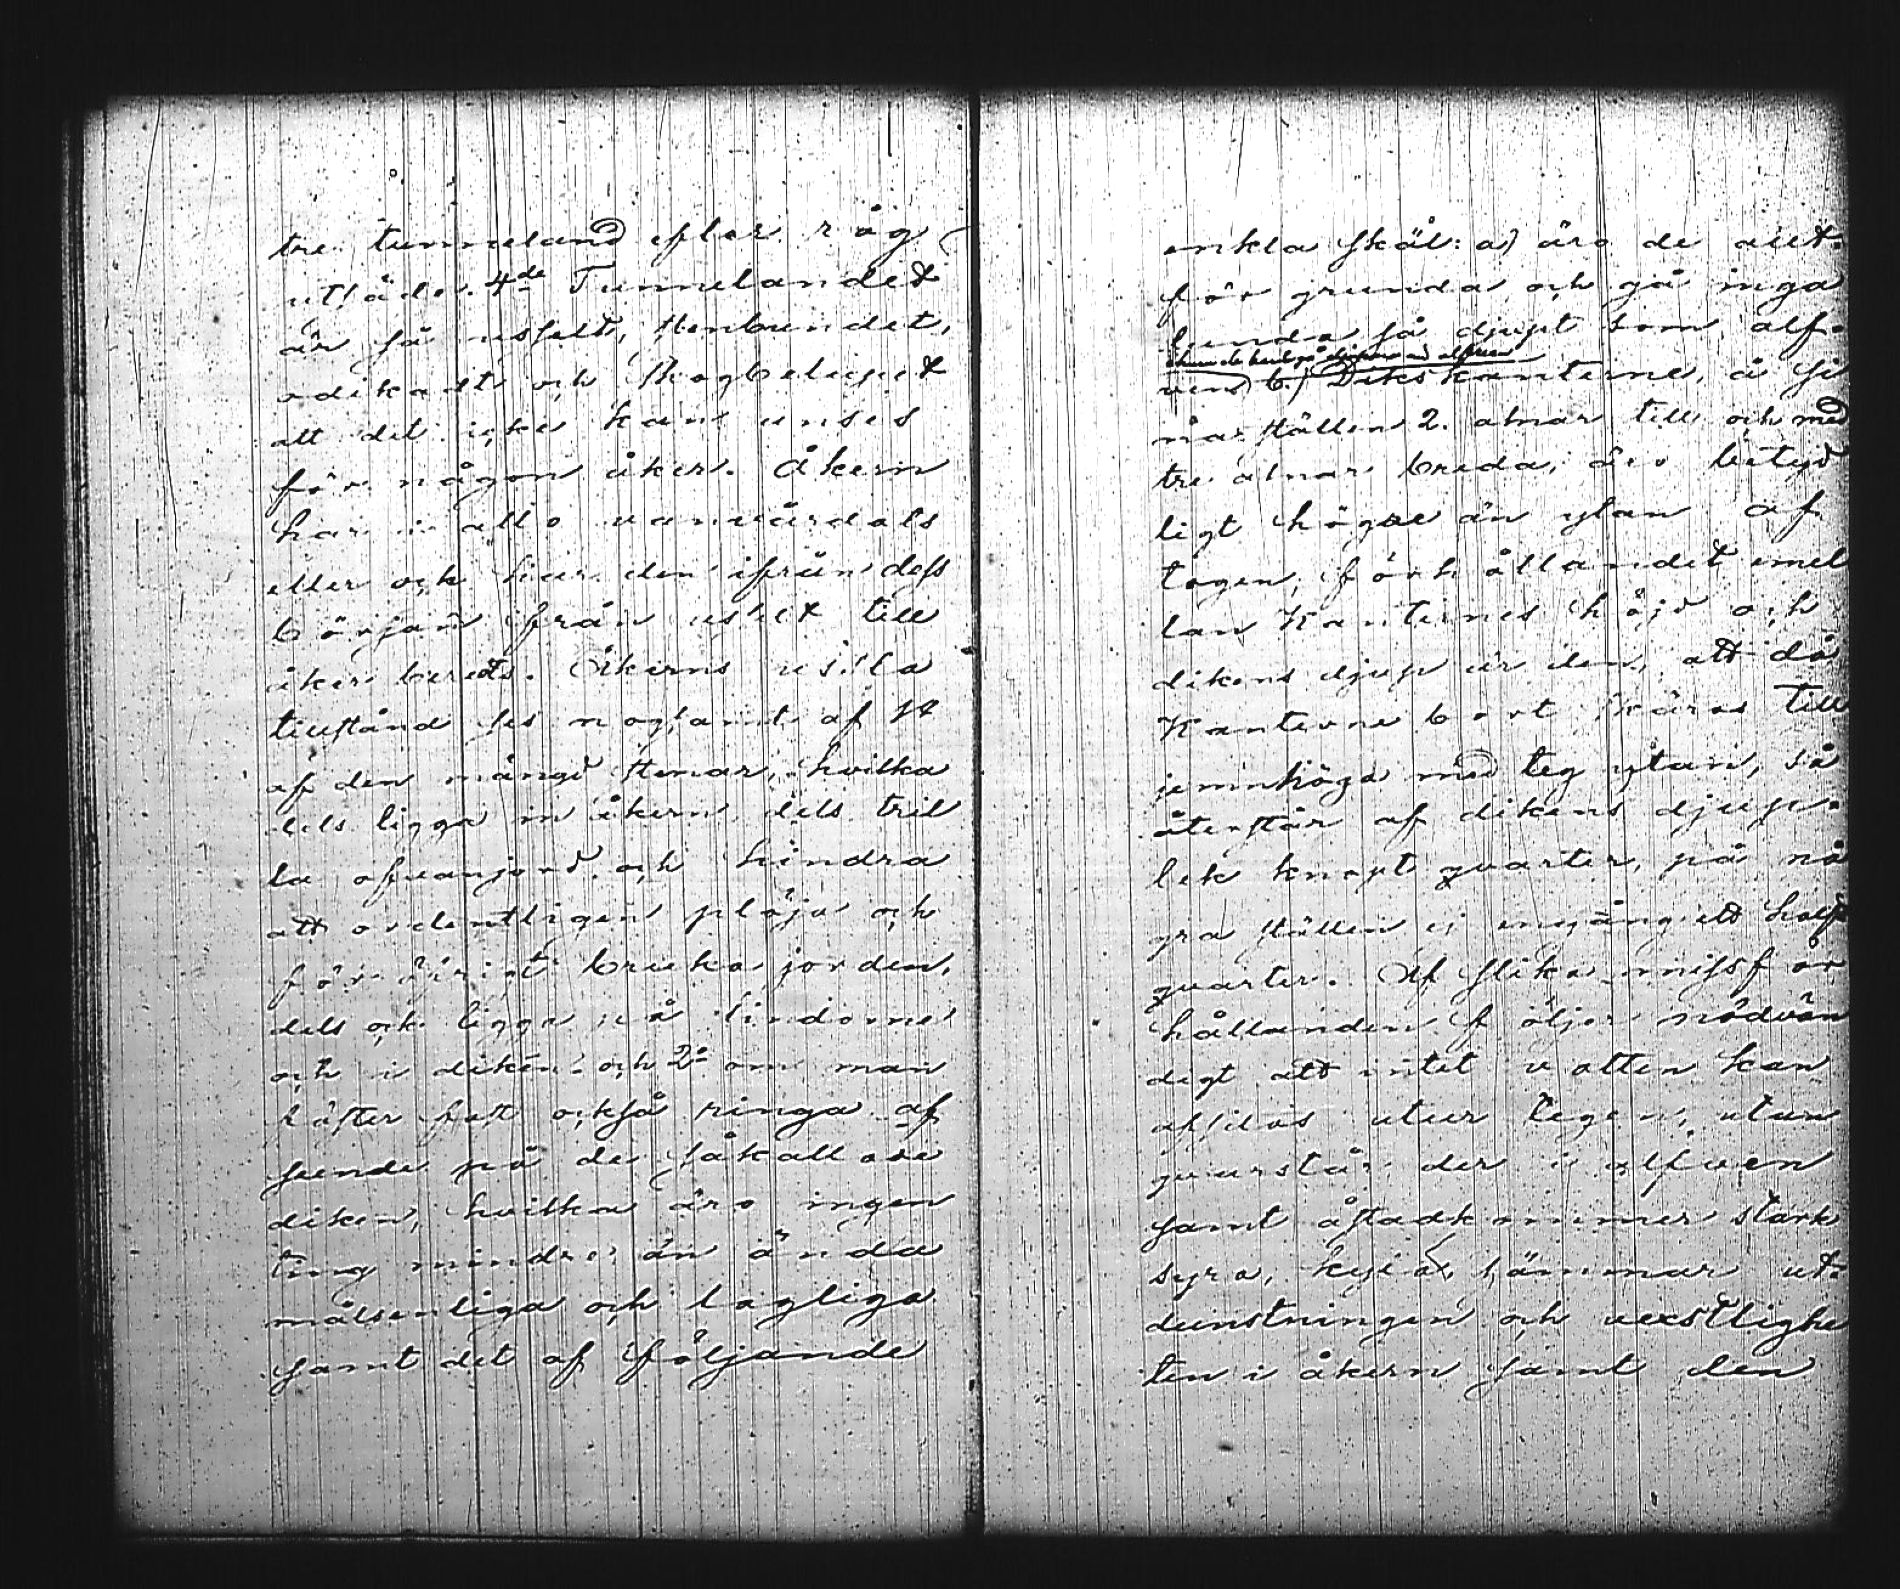 tre tunneland efter råg
utsäde. 4de Tunnelandet
är så usselt, stenbundet,
odikadt och skogbelupet
att det icke kan anses
för någon åker. Åkern
har i allo vanvårdats
eller och har den ifrån dess
början från uselt till
åker beredts. Åkerns usla
tillstånd ses nogsamt af 1o
af den mängd stenar, hvilka
dels ligga in åkern dels tril
la ofvanjord och hindra
att ordentligen plöja och
för öfrigt bruka jorden,
dels ock ligga på lindorne
och i diken och 2o om man
fäster fast också ringa af
seende på de såkallade
diken, hvilka äro ingen
ting mindre än ända
målsenliga och lagliga
samt det af följande
enkla skäl: a) äro de allt
för grunda och gå inga
lunda så djupt som alf-
ven b) Dikskanterne, å si
na ställen 2. alnar till och med
tre alnar breda, äro betyd
ligt högre än ytan af
tegen, förhållandet emel
lan Kanternes höjd och
dikens djup är den, att då
Kanterne bort skäras till
jemnhöga med teg ytan, så
återstår af dikens djup-
lek knapt qvarter, på nå
gra ställen ej engång ett half
qvarter. Af slika missför
hållanden följer nödvän
digt att intet vatten kan
afsilas utur tegen, utan
qvarstår der i alfven
samt åstadkommer stark
syra, kyla, hämmar ut-
dunstningen och vexstlighe
ten i åkern samt den